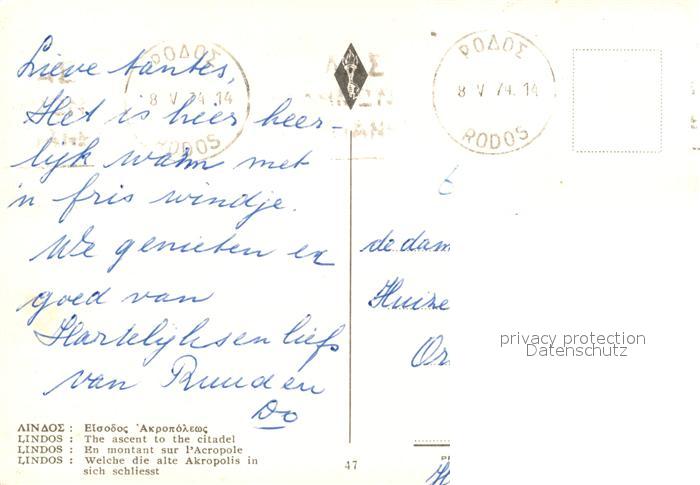 Lieve tantes,
Het is heer heer-
lijk warm met
'n fris windje.
We genieten er
goed van
Hartelijks en liefs
van Ruud en
Do
ΡΟΔΟΣ
8 V 74.14
RODOS
ΡΟΔΟΣ
8 V 74.14
RODOS
de dam
Huize
Or
privacy protection
Datenschutz
ΛΙΝΔΟΣ : Εἴσοδος Ἀκροπόλεως
LINDOS : The ascent to the citadel
LINDOS : En montant sur l'Acropole
LINDOS : Welche die alte Akropolis in
sich schliesst
47